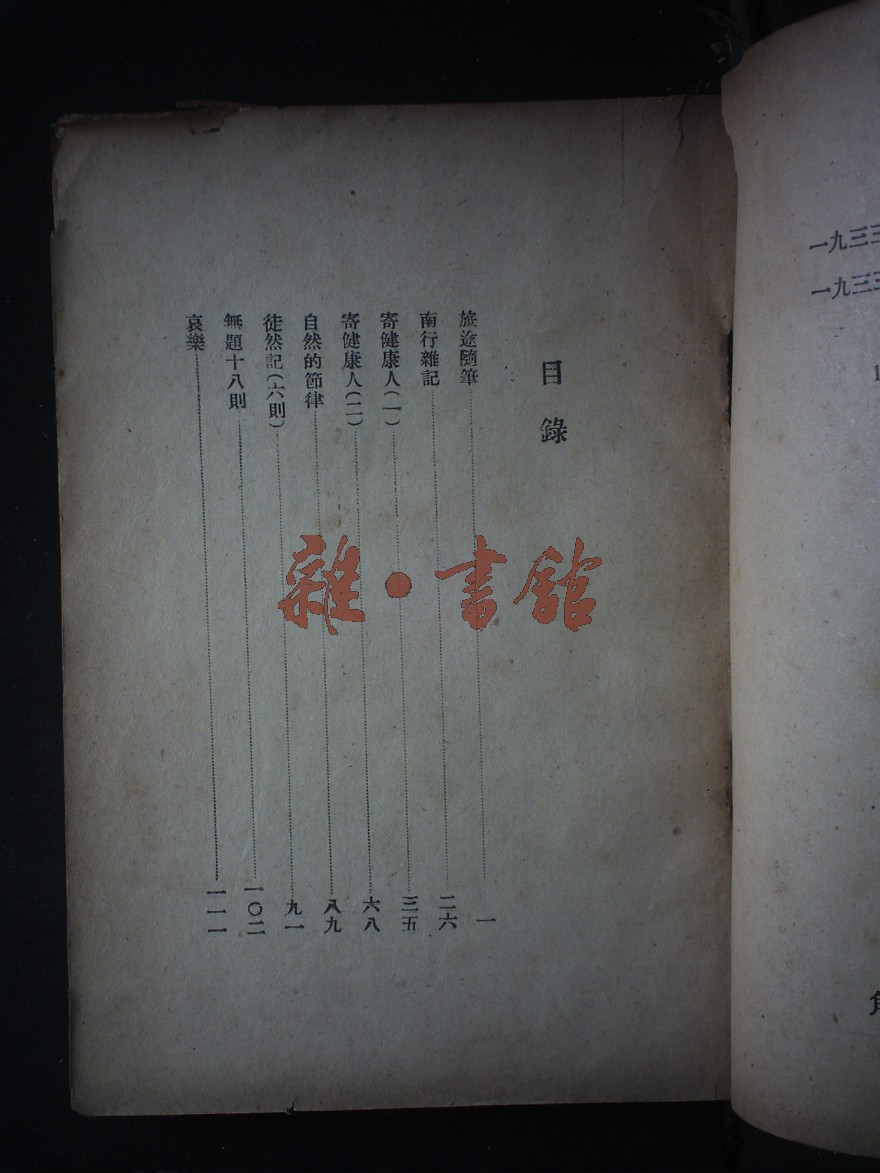 目錄
旅途隨筆 一
南行雜記 二六
寄健康人(一) 三五
寄健康人(二) 六八
自然的節律 八九
徒然記(六則) 九一
無題十八則 一〇二
哀樂 一一一
雜·書館
一九三三
一九三三